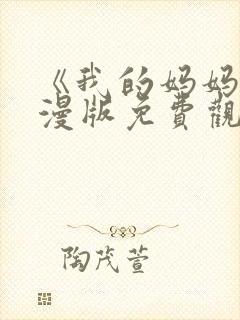 《我的妈妈
漫版免費觀
陶茂萱